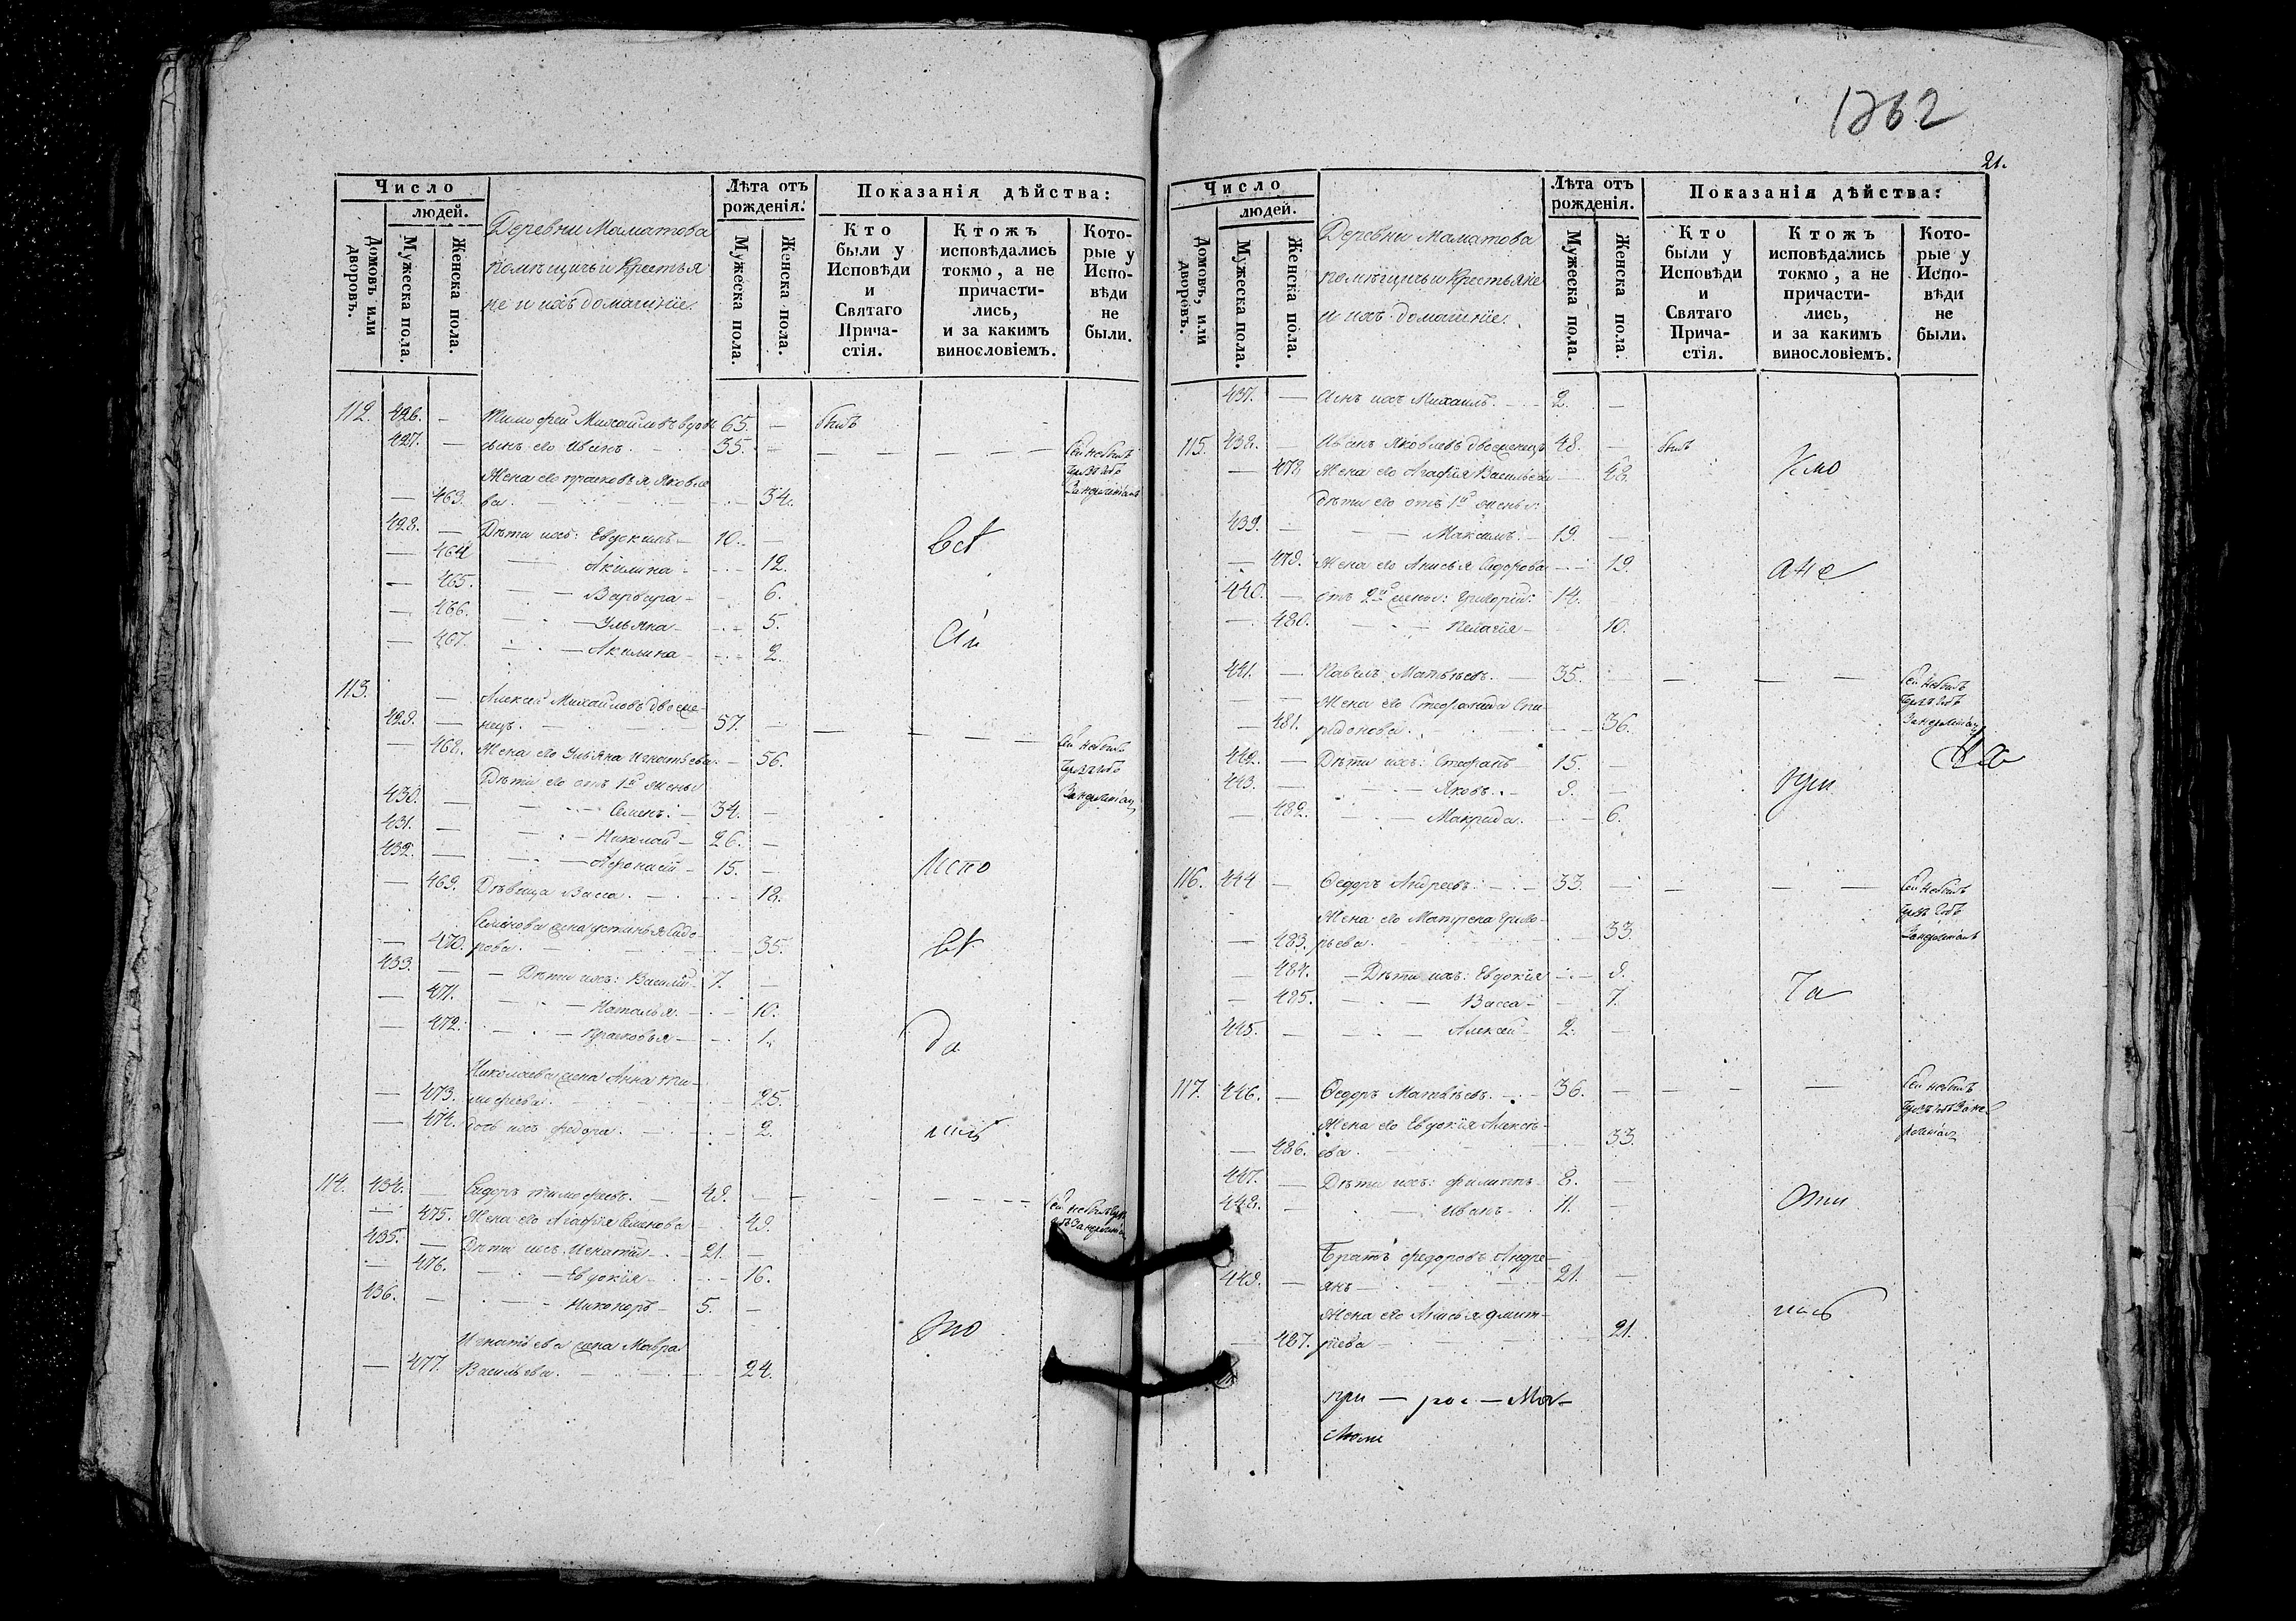 1862
21.
Число
людей.
Домовъ или дворовъ.
Мужеска пола.
Женска пола.
Деревни Маматова
помѣщичьи крестья
не и ихъ домашніе.
Лѣта отъ
рожденія.
Мужеска пола.
Женска пола.
Показанія дѣйства:
Кто
были у
Исповѣди
и
Святаго
Прича-
стія.
Ктожъ
исповѣдались
токмо, а не
причасти-
лись,
и за какимъ
винословіемъ.
Кото-
рые у
Испо-
вѣди
не
были.
112. 426. — Тимофей Михайловъ вдовъ 65. — былъ
427. — сынъ его Иванъ. 35. — Сей небылъ
Жена его Прасковья Яковле
— 463. ва. 34.
428. — Дѣти ихъ: Евдокимъ 10. —
— 464 Акилина 12.
— 465. Варвара 6.
— 466. Ульяна 5.
— 467. Акилина 2.
113. — Алексей Михайловъ двоеже-
429. — нецъ. 57. — Сей небылъ
— 468. Жена его Ульяна Игнатьева. 56.
Дѣти его отъ 1й жены
430. — Семенъ. 34. —
431. — Николай 26. —
432. — Афонасій 15. —
— 469. Дѣвица Васса. 18.
Семенова жена Устинья Сидо-
— 470. рова. 35.
433. — Дѣти ихъ: Василій 7. —
— 471. Наталья. 10.
— 472. Прасковья 1.
Николаева жена Анна
— 473. 25.
— 474. дочь ихъ Федора. 2.
114. 434. — Сидоръ Тимофеевъ. 49. — Сей небылъ
— 475. Жена его Агафія Семенова 49.
435. — Дѣти ихъ: Игнатій 21. —
— 476. Евдокія 16.
436. — Никоноръ 5. —
Игнатьева жена Мавра
— 477. Васильева. 24.
Число
людей.
Домовъ, или дворовъ.
Мужеска пола.
Женска пола.
Деревни Маматова
помѣщичьи крестьяне
и ихъ домашніе.
Лѣта отъ
рожденія.
Мужеска пола.
Женска пола.
Показанія дѣйства:
Кто
были у
Исповѣди
и
Святаго
Прича-
стія.
Ктожъ
исповѣдались
токмо, а не
причасти-
лись,
и за какимъ
винословіемъ.
Кото-
рые у
Испо-
вѣди
не
были.
437. — Сынъ ихъ Михаилъ. 2. —
115. 438. — Иванъ Яковлевъ двоеженецъ 48. — былъ
— 478. Жена его Агафія Васильева 48.
Дѣти его отъ 1й жены:
439. — Максимъ. 19. —
— 479. Жена его Анисья Сидорова 19.
440. — отъ 2й жены: Григорій: 14. —
— 480. Пелагія 10.
441. — Павелъ Матвѣевъ. 35. — Сей небылъ
— Жена его Стефанида Спи-
— 481. ридонова. 36.
442. — Дѣти ихъ: Стефанъ 15. —
443. — Яковъ. 9. —
— 482. Макрида. 6.
116. 444 — Ѳедоръ Андреевъ. 33. — Сей небылъ
Жена его Матрена Григо-
— 483. рьева. 33.
— 484. Дѣти ихъ: Евдокія 9.
— 485. Васса 7.
445. — Алексей 2. —
117. 446. — Ѳедоръ Матвѣевъ. 36. — Сей небылъ
Жена его Евдокія Алексѣ-
— 486. ева. 33.
447. — Дѣти ихъ: Филиппъ 8. —
448. — Иванъ 11. —
Братъ Федоровъ Андре-
449. — янъ 21. —
Жена его Анисья Дмит-
— 487. ріева 21.